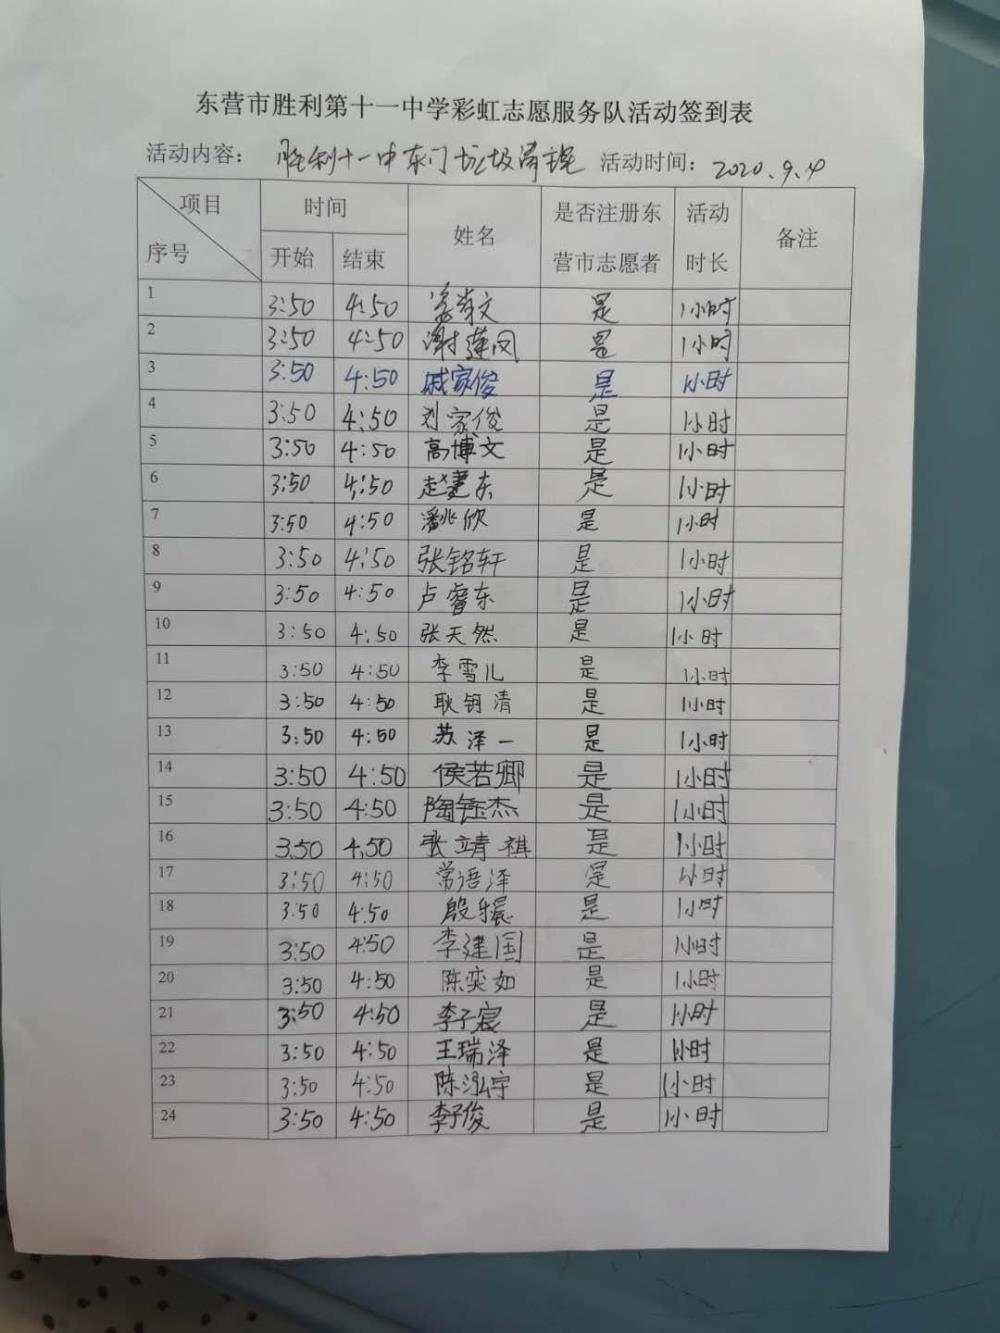 东营市胜利第十一中学彩虹志愿服务队活动签到表
活动内容： 胜利十一中东门垃圾 活动时间：2020.9.4
项目 时间 姓名 是否注册东 活动 备注
序号 开始 结束 营市志愿者 时长
1 3:50 4:50 是 1小时
2 3:50 4:50 谢莲凤 是 1小时
3 3:50 4:50 戚家俊 是 1小时
4 3:50 4:50 刘家俊 是 1小时
5 3:50 4:50 高博文 是 1小时
6 3:50 4:50 赵建东 是 1小时
7 3:50 4:50 潘兆欣 是 1小时
8 3:50 4:50 张铭轩 是 1小时
9 3:50 4:50 卢睿东 是 1小时
10 3:50 4:50 张天然 是 1小时
11 3:50 4:50 李雪儿 是 1小时
12 3:50 4:50 耿钥清 是 1小时
13 3:50 4:50 苏泽一 是 1小时
14 3:50 4:50 侯若卿 是 1小时
15 3:50 4:50 陶钰杰 是 1小时
16 3:50 4:50 张靖祺 是 1小时
17 3:50 4:50 常语泽 是 1小时
18 3:50 4:50 殷 是 1小时
19 3:50 4:50 李建国 是 1小时
20 3:50 4:50 陈奕如 是 1小时
21 3:50 4:50 李子宸 是 1小时
22 3:50 4:50 王瑞泽 是 1小时
23 3:50 4:50 陈泓宇 是 1小时
24 3:50 4:50 李子俊 是 1小时